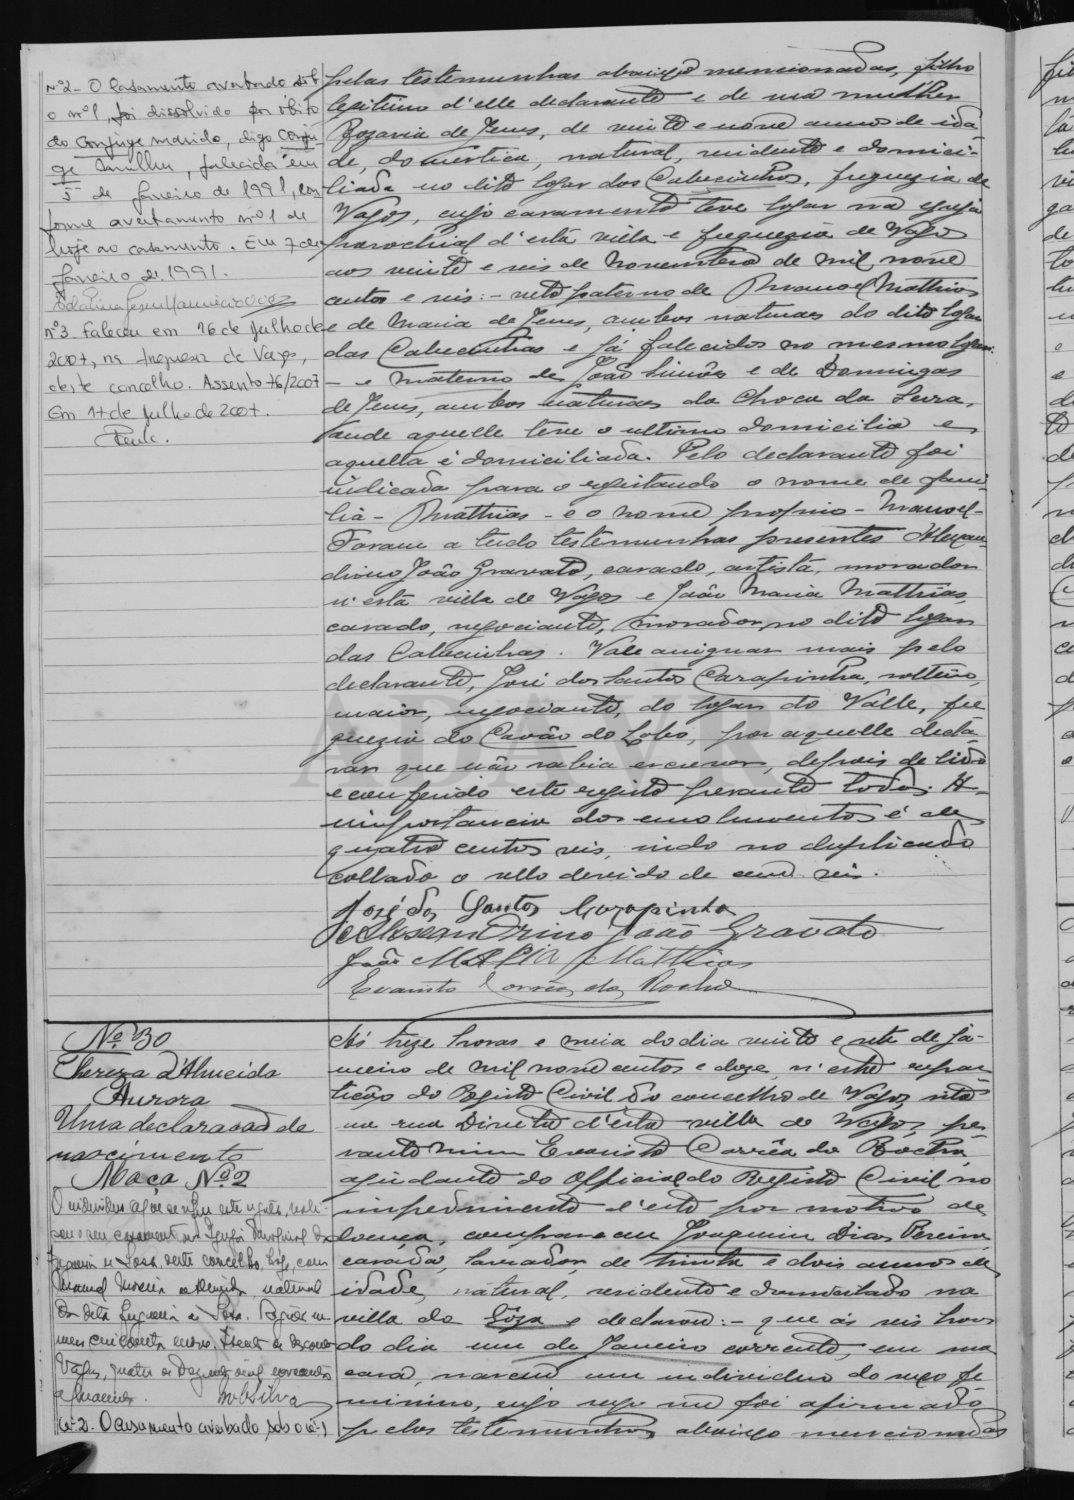 nº2 - O casamento averbado sob
o nº1, foi dissolvido por óbito
do conjuge marido, digo conju-
ge mulher, falecida em
5 de Janeiro de 1991, con
forme averbamento nº1 de
hoje ao casamento. Em 7 de
Janeiro de 1991.
nº3. Faleceu em 16 de Julho de
2007, na freguesia de Vagos,
deste concelho. Assento 76/2007
Em 17 de Julho de 2007.
pelas testemunhas abaixo mencionadas, filho
legitimo d'elle declarante e de sua mulher
Rozaria de Jesus, de vinte e nove annos de ida-
de, domestica, natural, residente e domici-
liada no dito logar das Cabecinhas, freguezia de
Vagos, cujo casamento teve logar na egreja
parochial d'esta villa e freguezia de Vagos
aos vinte e seis de Novembro de mil nove
centos e seis: - neto paterno de Manoel Mathias
e de Maria de Jesus, ambos naturaes do dito logar
das Cabecinhas e já falecidos no mesmo logar
- e materno de João Simões e de Domingas
de Jesus, ambos naturaes da Choca da Serra,
aonde aquelle teve o ultimo domicilio e
aquella é domiciliada. Pelo declarante foi
indicada para o registando o nome de fami-
lia - Mathias - e o nome proprio - Manoel -
Foram a tudo testemunhas presentes Alexan-
drino João Gravato, casado, artista, morador
n'esta villa de Vagos e João Maria Mathias,
casado, negociante, morador no dito logar
das Cabecinhas. Vale assignar mais pelo
declarante, José dos Santos Carapinha, solteiro,
maior, negociante, do logar do Valle, fre
guezia do Covão do Lobo, por aquelle decla-
rar que não sabia escrever, depois de lido
e conferido este registo perante todos. A
importancia dos emolumentos é de
quatro centos reis, indo no duplicado
collado o sello devido de cem reis.
José dos Santos Carapinha
Alexandrino João Gravato
João Maria Mathias
Evaristo Corrêa da Rocha
ADAVR
Nº 30
Thereza d'Almeida
Aurora
Uma declaração de
nascimento
Maço Nº 2
O individuo a que se refere este registo, reali-
sou o seu casamento na Igreja Parochial da
freguesia de Sosa, deste concelho, hoje, com
Manuel natural
da dita freguesia de Sosa.
(nº-2. O casamento averbado sob o nº-1
Ás treze horas e meia do dia vinte e sete de Ja-
neiro de mil nove centos e doze, n'esta repar-
tição do Registo Civil do concelho de Vagos, sita
na rua Direita d'esta villa de Vagos, pe-
rante mim Evaristo Corrêa da Rocha,
ajudante do Official do Registo Civil no
impedimento d'este por motivo de
doença, compareceu Joaquim Dias Pereira,
casado, lavrador, de trinta e dois annos de
idade, natural, residente e domiciliado na
villa de Sôza e declarou: - que ás seis horas
do dia um de Janeiro corrente, em sua
casa, nasceu um individuo do sexo fe
minino, cujo sexo me foi afirmado
pelas testemunhas abaixo mencionadas